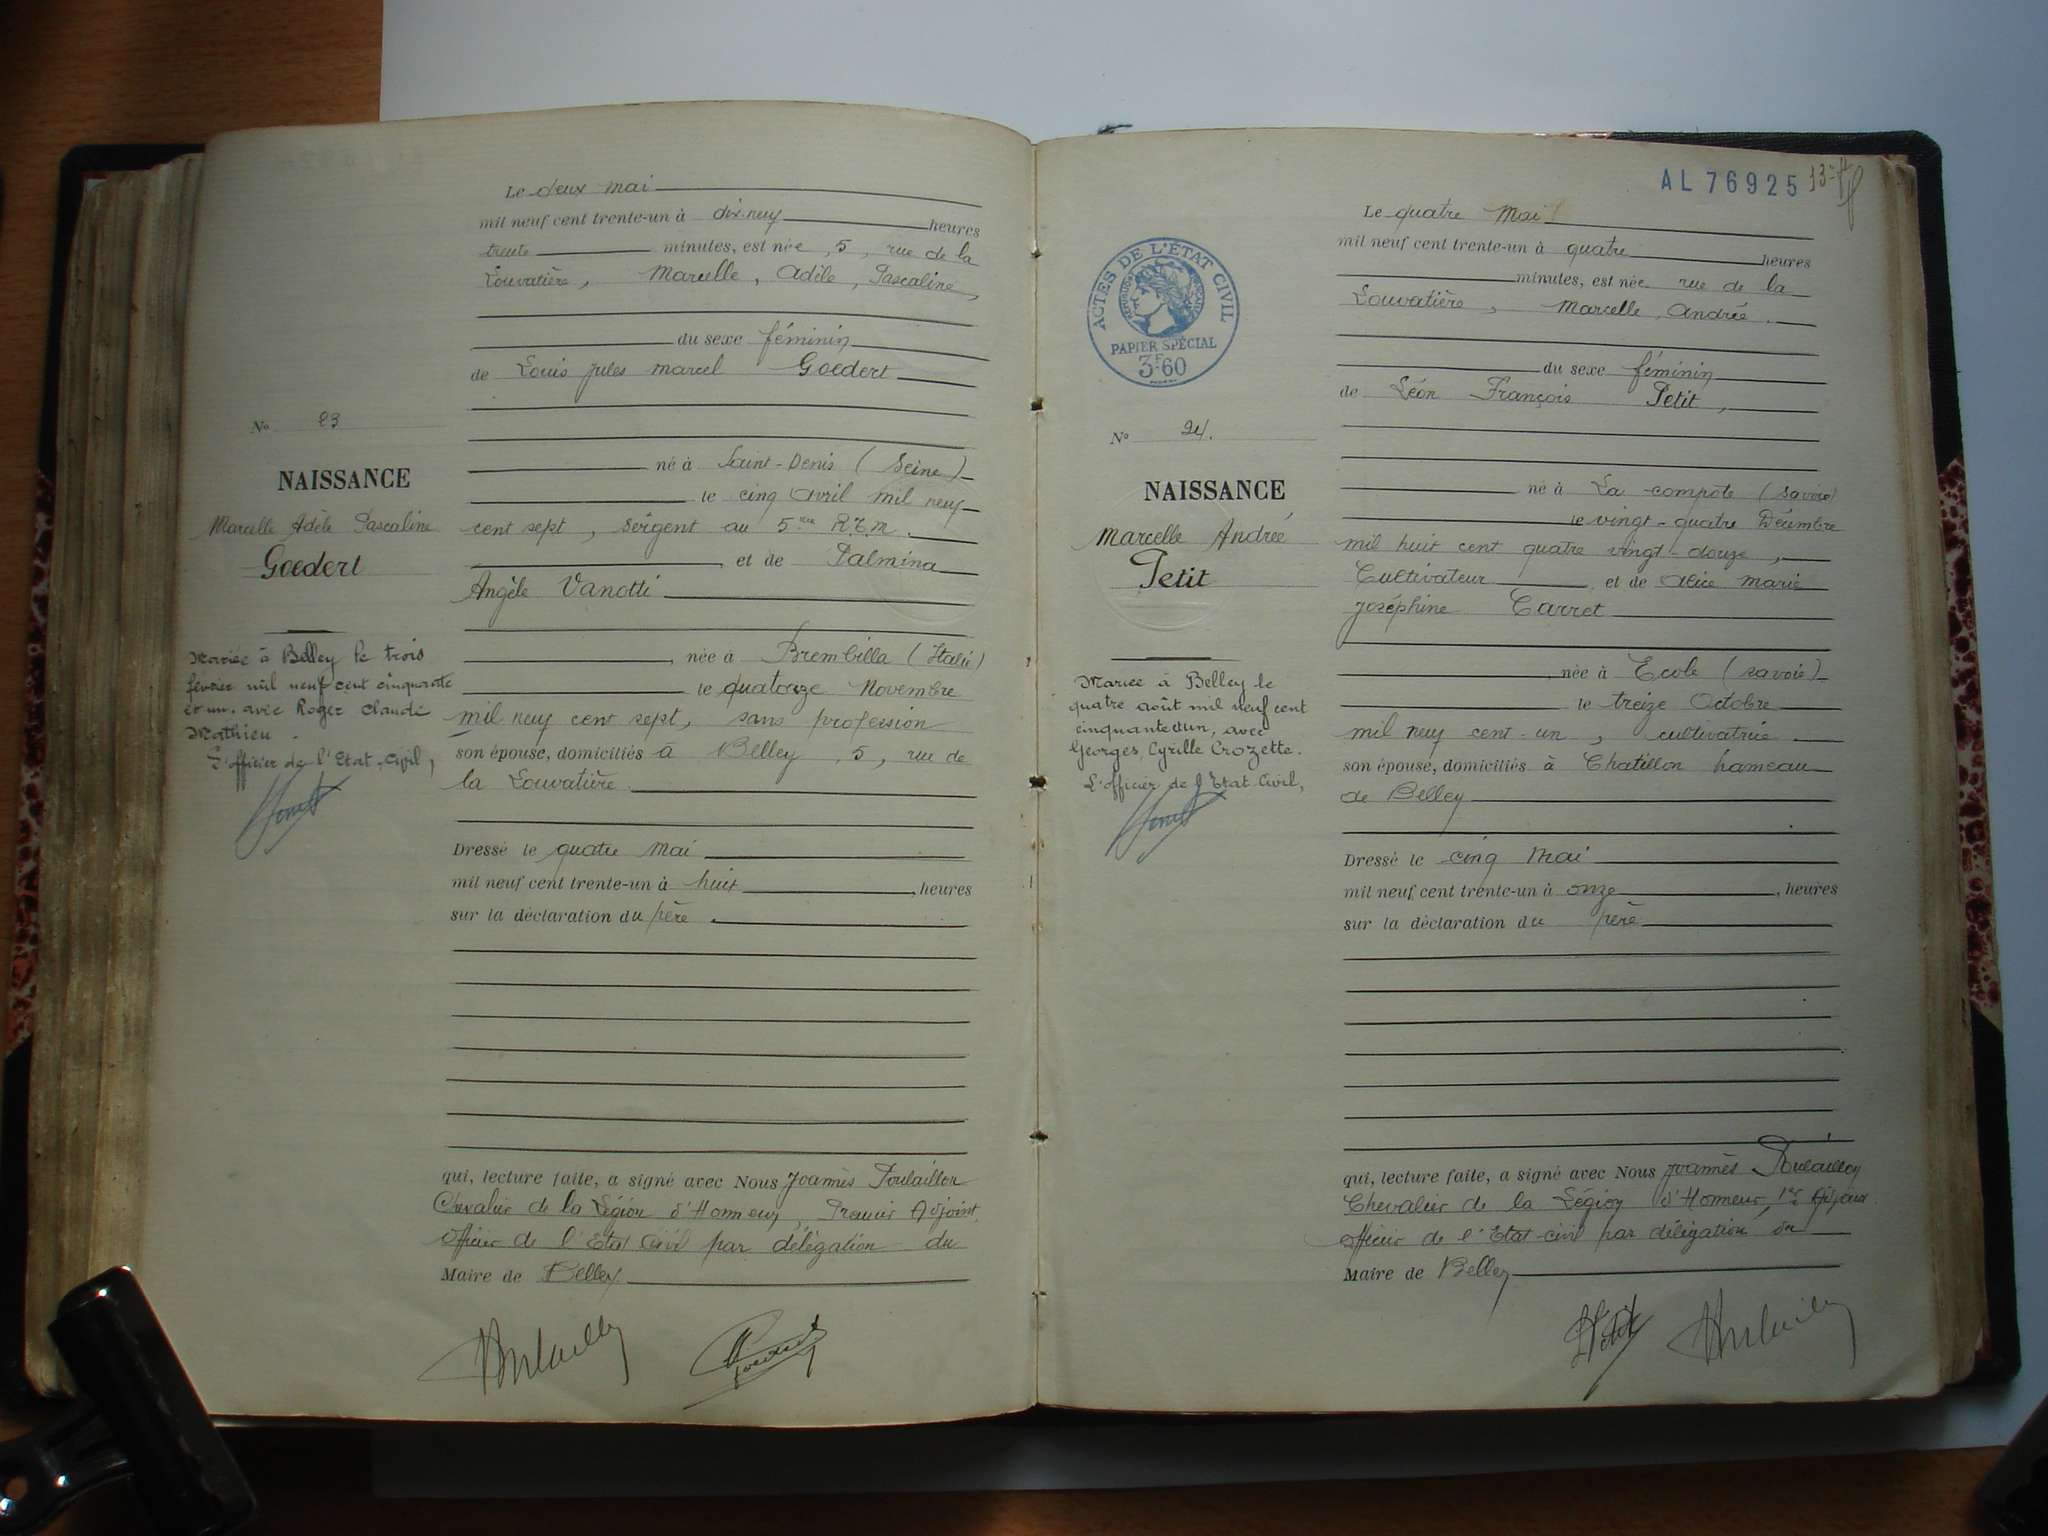 Le deux mai
mil neuf cent trente-un à dix neuf heures
trente minutes, est née, 5, rue de la
Louvatière, Marcelle, Adèle, Pascaline,
du sexe féminin
de Louis Jules Marcel Goedert
né à Saint-Denis (Seine)
le cinq Avril mil neuf
cent sept, sergent au 5me R.T.M.
et de Palmina
Angèle Vanotti
née à Brembilla (Italie)
le quatorze Novembre
mil neuf cent sept, sans profession
son épouse, domiciliés à Belley, 5, rue de
la Louvatière.
Dressé le quatre Mai
mil neuf cent trente-un à huit, heures
sur la déclaration du père.
qui, lecture faite, a signé avec Nous Joannès Poulaillon
Chevalier de la Légion d'Honneur, Premier Adjoint,
officier de l'Etat Civil par délégation du
Maire de Belley
No 23
NAISSANCE
Marcelle Adèle Pascaline
Goedert
Mariée à Belley le trois
février mil neuf cent cinquante
et un. avec Roger Claude
Mathieu.
L'officier de l'Etat-Civil,
AL 76925 13e ff
ACTES DE L'ÉTAT CIVIL
RÉPUBLIQUE FRANÇAISE
PAPIER SPÉCIAL
3F60
Le quatre Mai
mil neuf cent trente-un à quatre heures
minutes, est née rue de la
Louvatière, Marcelle, Andrée.
du sexe féminin
de Léon François Petit,
né à La Compote (Savoie)
le vingt-quatre Décembre
mil huit cent quatre vingt-douze,
Cultivateur et de Alice Marie
Joséphine Carret
née à Ecole (Savoie)
le treize Octobre
mil neuf cent-un, cultivatrice
son épouse, domiciliés à Chatillon hameau
de Belley
Dressé le cinq Mai
mil neuf cent trente-un à onze, heures
sur la déclaration du père
qui, lecture faite, a signé avec Nous Joannès Poulaillon
Chevalier de la Légion d'Honneur, 1er Adjoint
officier de l'Etat-civil par délégation du
Maire de Belley
No 24.
NAISSANCE
Marcelle Andrée
Petit
Mariée à Belley le
quatre août mil neuf cent
cinquante et un, avec
Georges, Cyrille Crozette.
L'officier de l'Etat Civil,